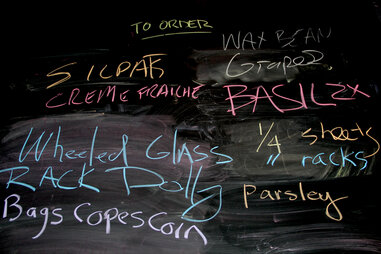 TO ORDER
WAX BEAN
Grapes
SILPATS
CREME FRAICHE
BASIL 2x
Wheeled Glass
RACK Dolly
1/4 sheets
" racks
parsley
Bags Copes Corn